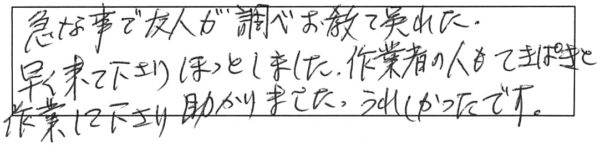 急な事で友人が調べお教て呉れた.
早く来て下さりほっとしました.作業者の人もてきぱきと
作業して下さり助かりました。うれしかったです。